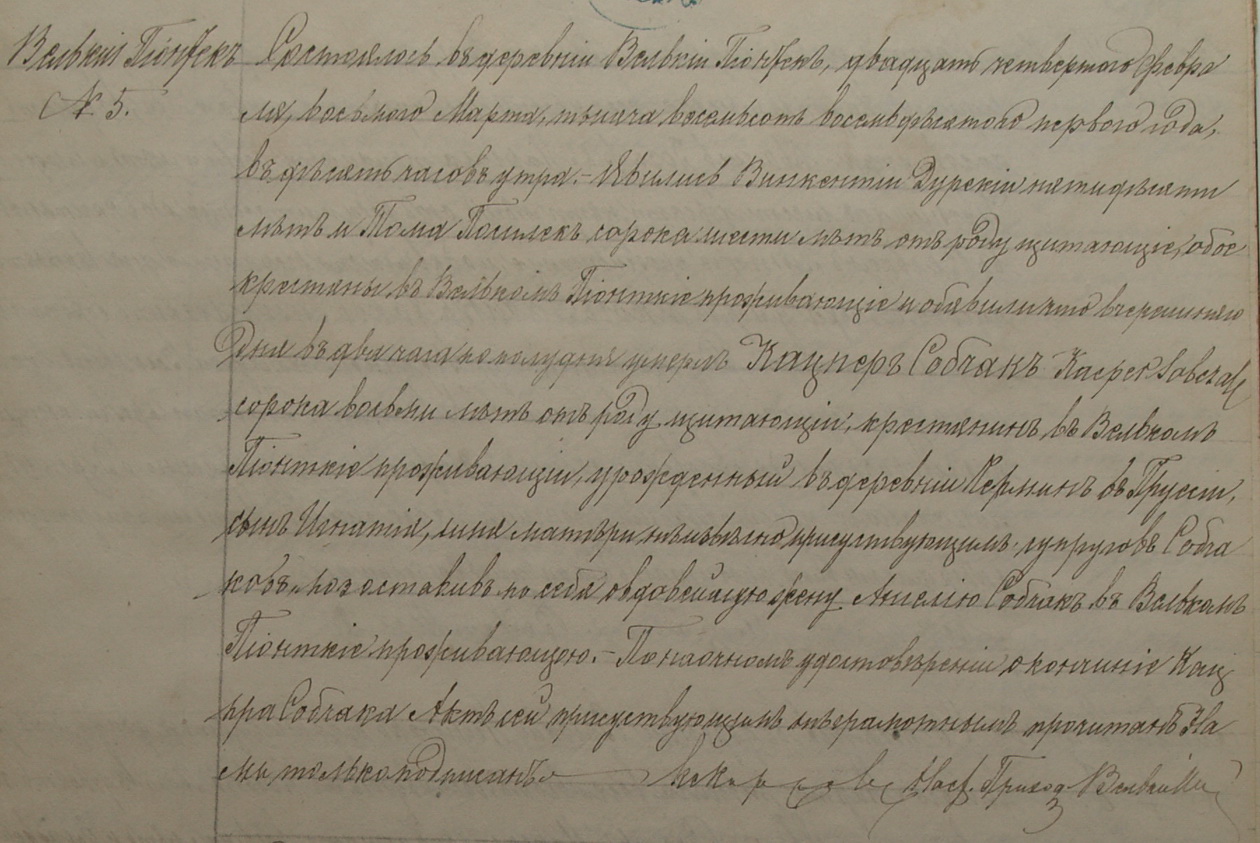 Велькій Піонтекъ
№ 5.
Состоялось въ деревніи Велькій Піонтекъ, двадцать четвертого Февра
ля, восьмого Марта, тысяча восемьсотъ восемьдесятого первого года,
въ десять часовъ утра. – Явились Винкентіи Дурскіи пятидесяти
лѣтъ и Тома сорока шести лѣтъ отъ роду щитающіе, обое
крестяны въ Велькомъ Піонткіе проживающіе и объявили что вчерашнего
дня въ два часа по полудни умерлъ Кацперъ Собчакъ Kacper Sobczak
сорока восьми лѣтъ отъ роду щитающіи, крестянинъ въ Велькомъ
Піонткіе проживающіи, урожденный въ деревніи въ Пруссіи,
сынъ Игнатія, имя матери неизвѣстно присутствующимъ супруговъ Собча
ковъ, позоставивъ по себѣ овдовѣйшую жену Анелію Собчакъ въ Велькомъ
Піонткіе проживающою. – По наочномъ удостовѣреніи о кончиніе Кац
пра Собчака Актъ сей присутствующимъ неграмотнымъ прочитанъ На
мы только подписанъ Наст. Приход. Велькій